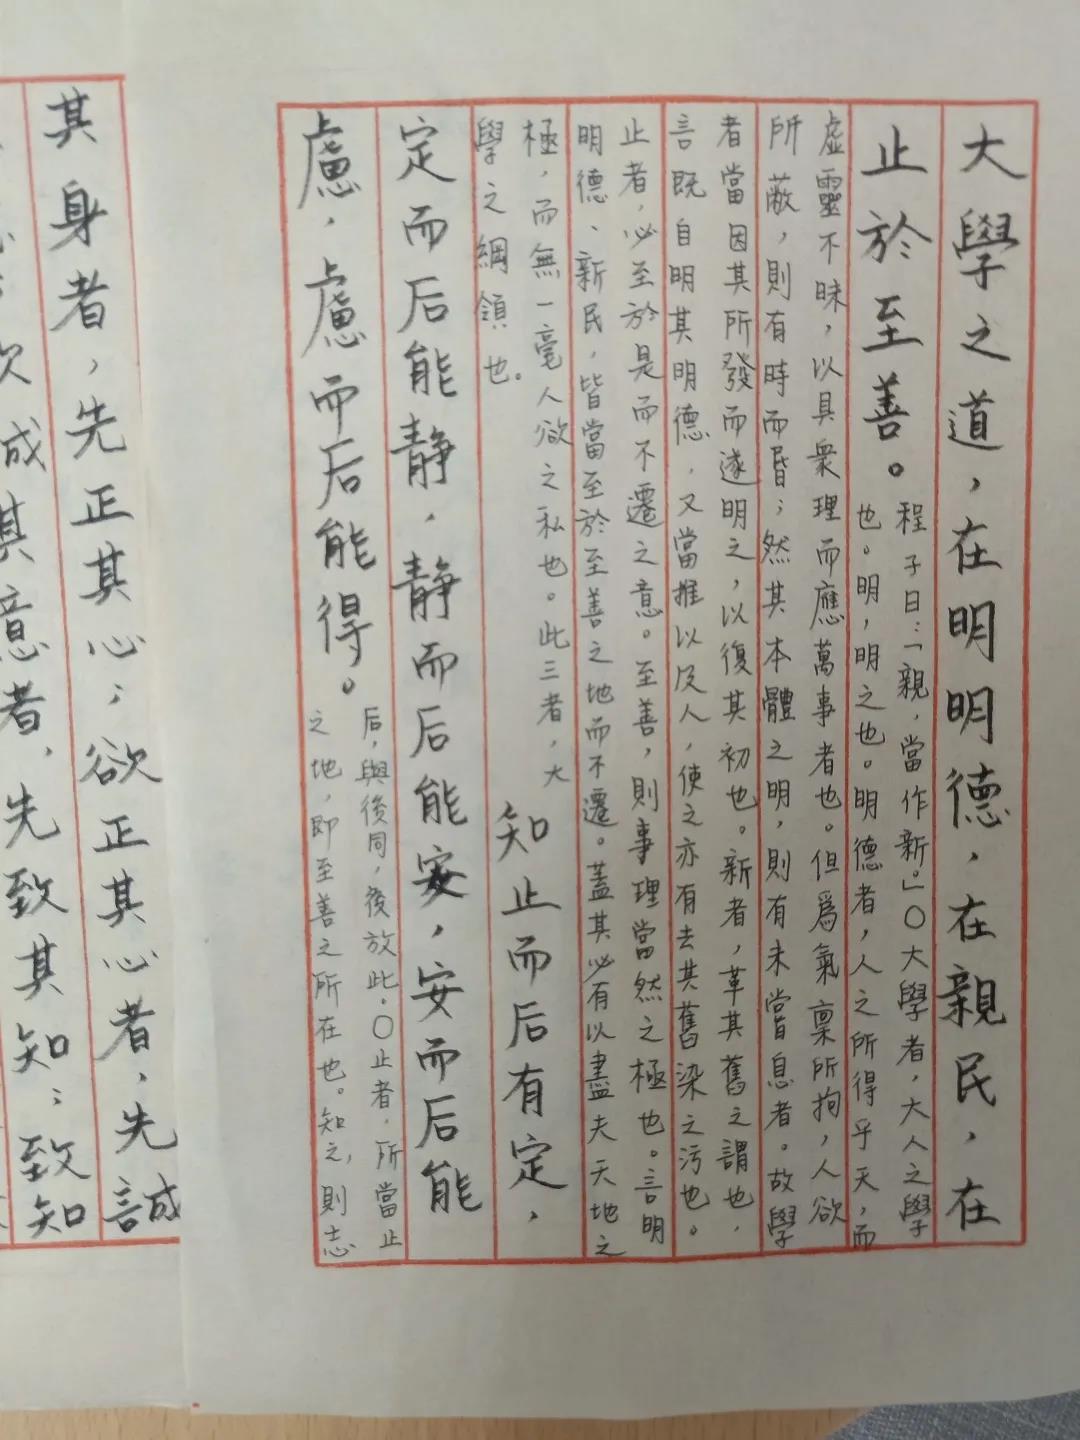 大學之道，在明明德，在親民，在
止於至善。
程子曰：「親，當作新。」○大學者，大人之學
也。明，明之也。明德者，人之所得乎天，而
虛靈不昧，以具衆理而應萬事者也。但爲氣稟所拘，人欲
所蔽，則有時而昏；然其本體之明，則有未嘗息者。故學
者當因其所發而遂明之，以復其初也。新者，革其舊之謂也，
言既自明其明德，又當推以及人，使之亦有去其舊染之污也。
止者，必至於是而不遷之意。至善，則事理當然之極也。言明
明德、新民，皆當至於至善之地而不遷。蓋其必有以盡夫天地之
極，而無一毫人欲之私也。此三者，大
學之綱領也。
知止而后有定，
定而后能静，静而后能安，安而后能
慮，慮而后能得。
后，與後同，後放此。○止者，所當止
之地，即至善之所在也。知之，則志
其身者，先正其心；欲正其心者，先誠
欲誠其意者，先致其知；致知